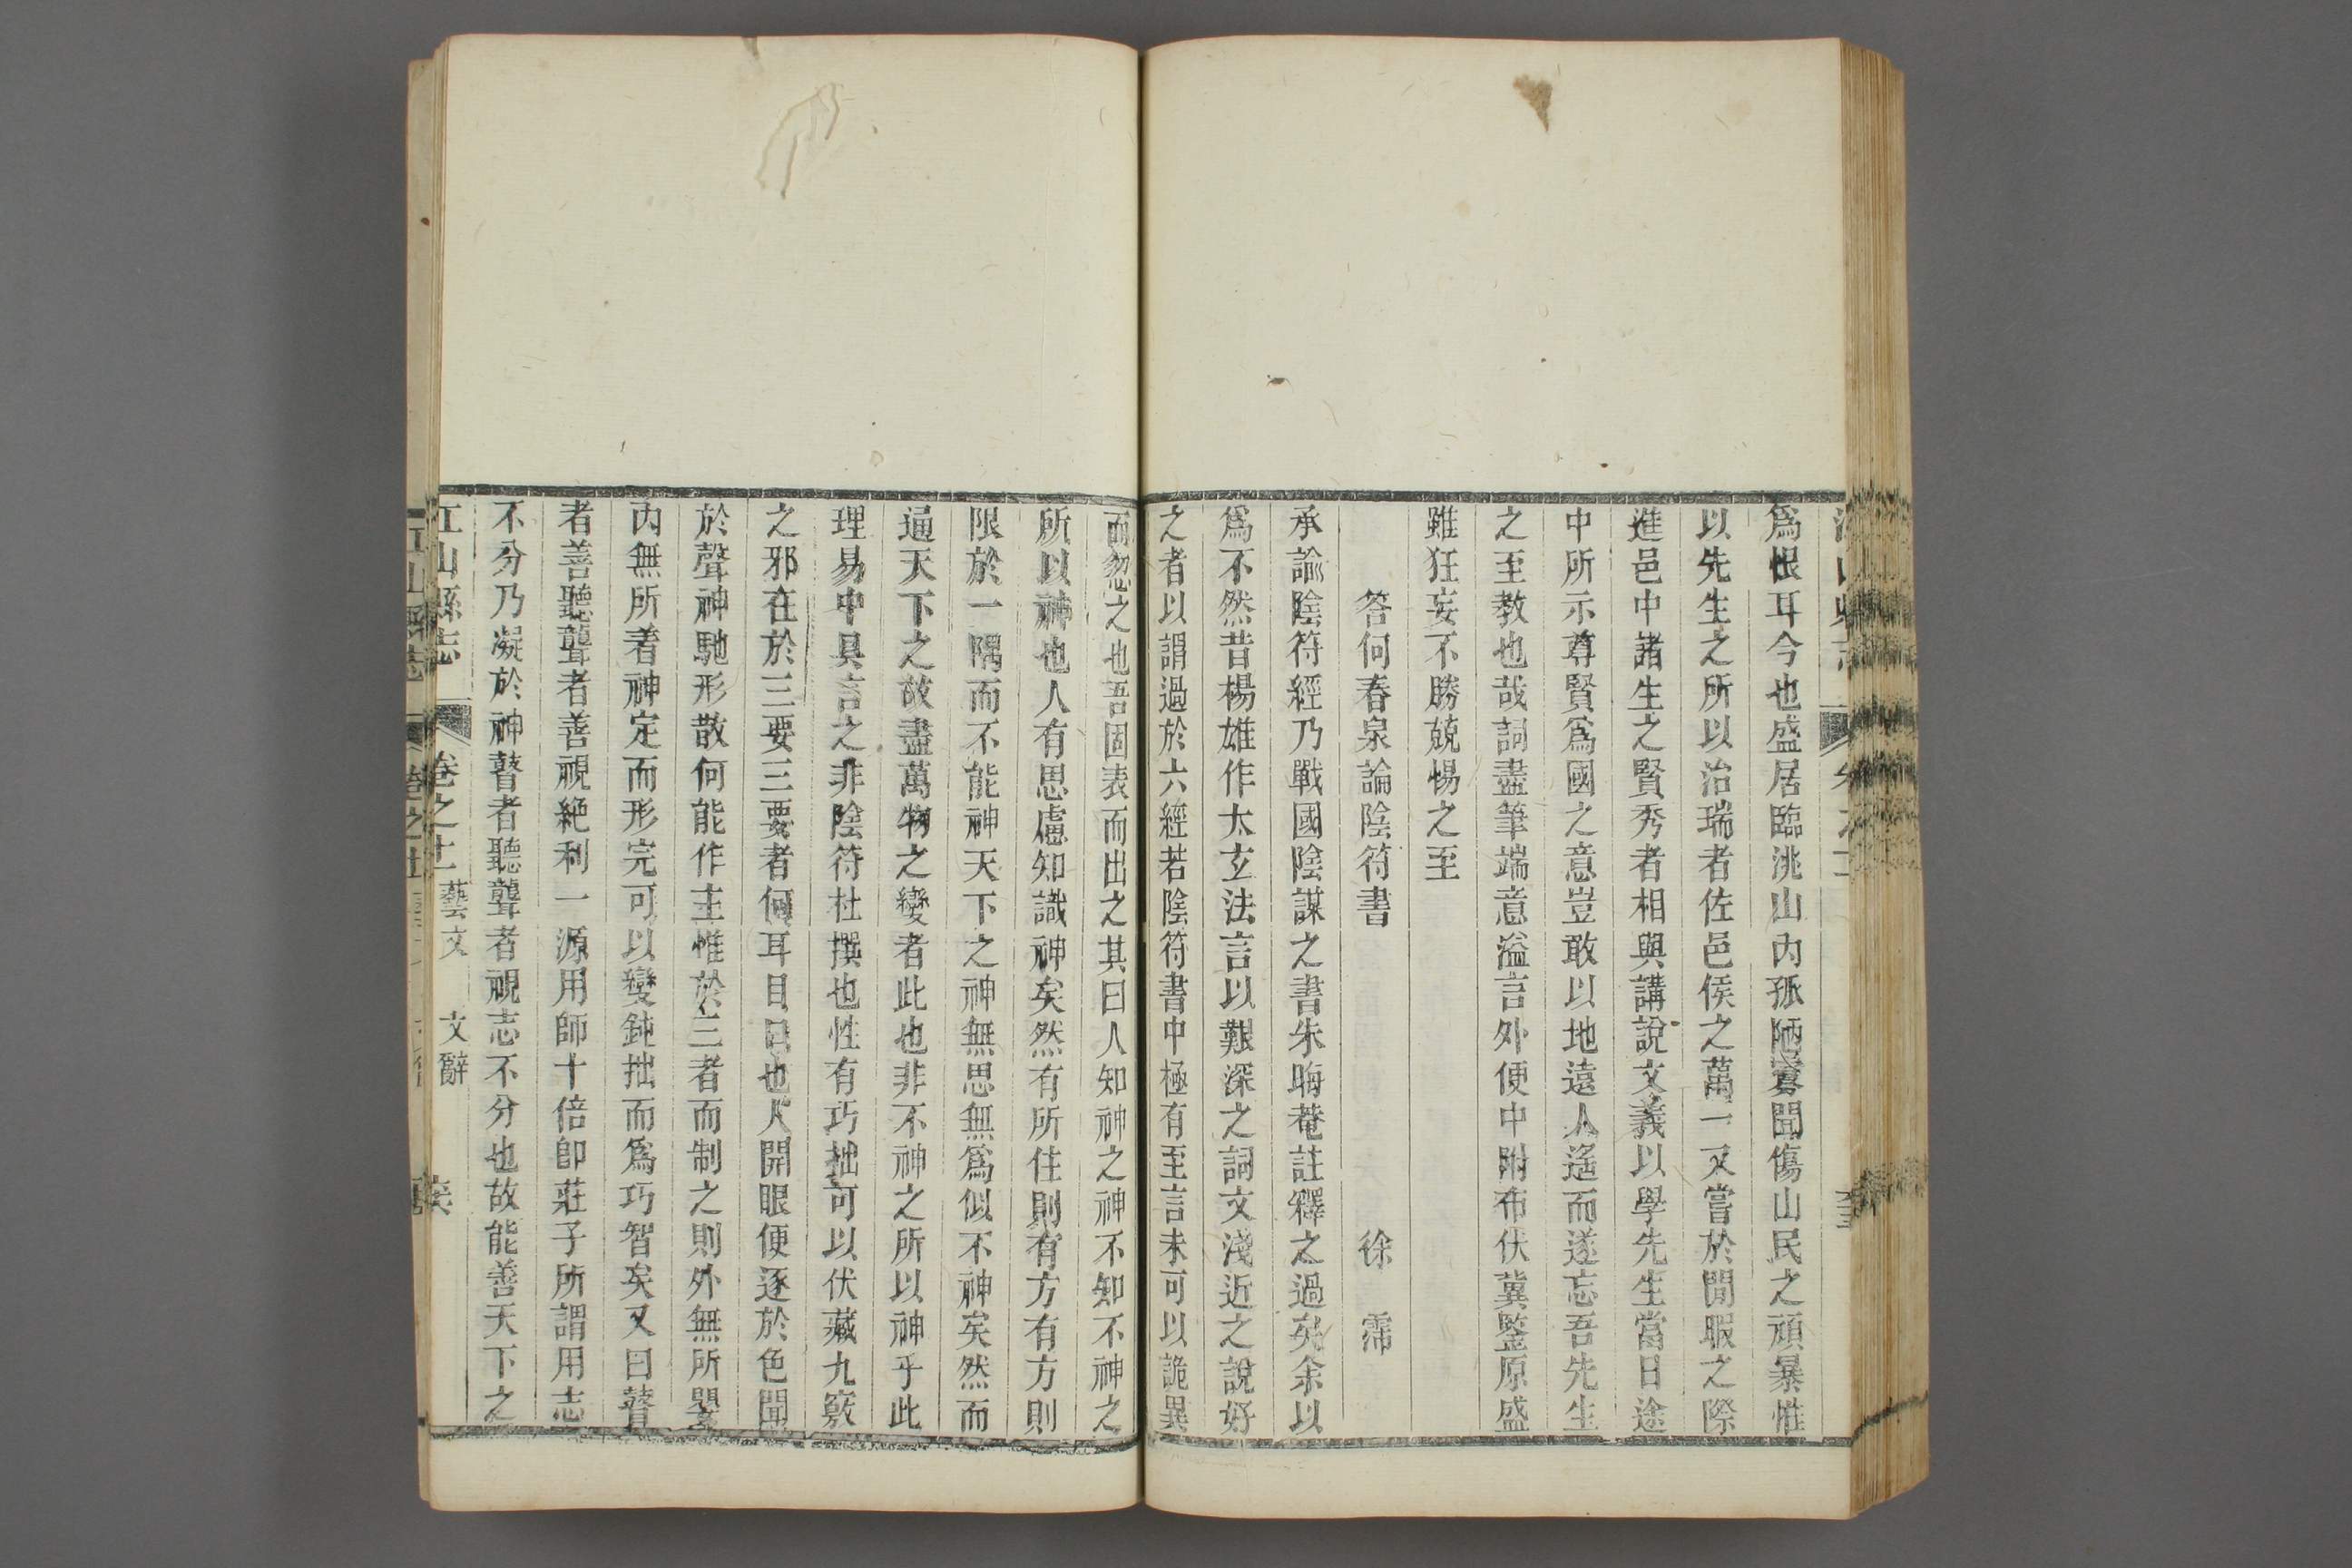 爲恨耳今也盛居臨洮山内孤陋寡聞傷山民之頑暴惟
以先生之所以治瑞者佐邑侯之萬一又嘗於閒暇之際
進邑中諸生之賢秀者相與講說文義以學先生當日途
中所示尊賢爲國之意豈敢以地遠人遙而遂忘吾先生
之至教也哉詞盡筆端意溢言外便中附布伏冀鑒原盛
雖狂妄不勝兢惕之至
答何春泉論陰符書 徐霈
承諭陰符經乃戰國陰謀之書朱晦菴註釋之過矣余以
爲不然昔楊雄作太玄法言以艱深之詞文淺近之說好
之者以謂過於六經若陰符書中極有至言未可以詭異
而忽之也吾固表而出之其曰人知神之神不知不神之
所以神也人有思慮知識神矣然有所住則有方有方則
限於一隅而不能神天下之神無思無爲似不神矣然而
通天下之故盡萬物之變者此也非不神之所以神乎此
理易中具言之非陰符杜撰也性有巧拙可以伏藏九竅
之邪在於三要三要者何耳目口也人開眼便逐於色聞
於聲神馳形散何能作主惟於三者而制之則外無所嬰
内無所着神定而形完可以變鈍拙而爲巧智矣又曰瞽
者善聽聾者善視絶利一源用師十倍卽莊子所謂用志
不分乃凝於神瞽者聽聾者視志不分也故能善天下之
江山縣志 卷之十二 藝文 文辭